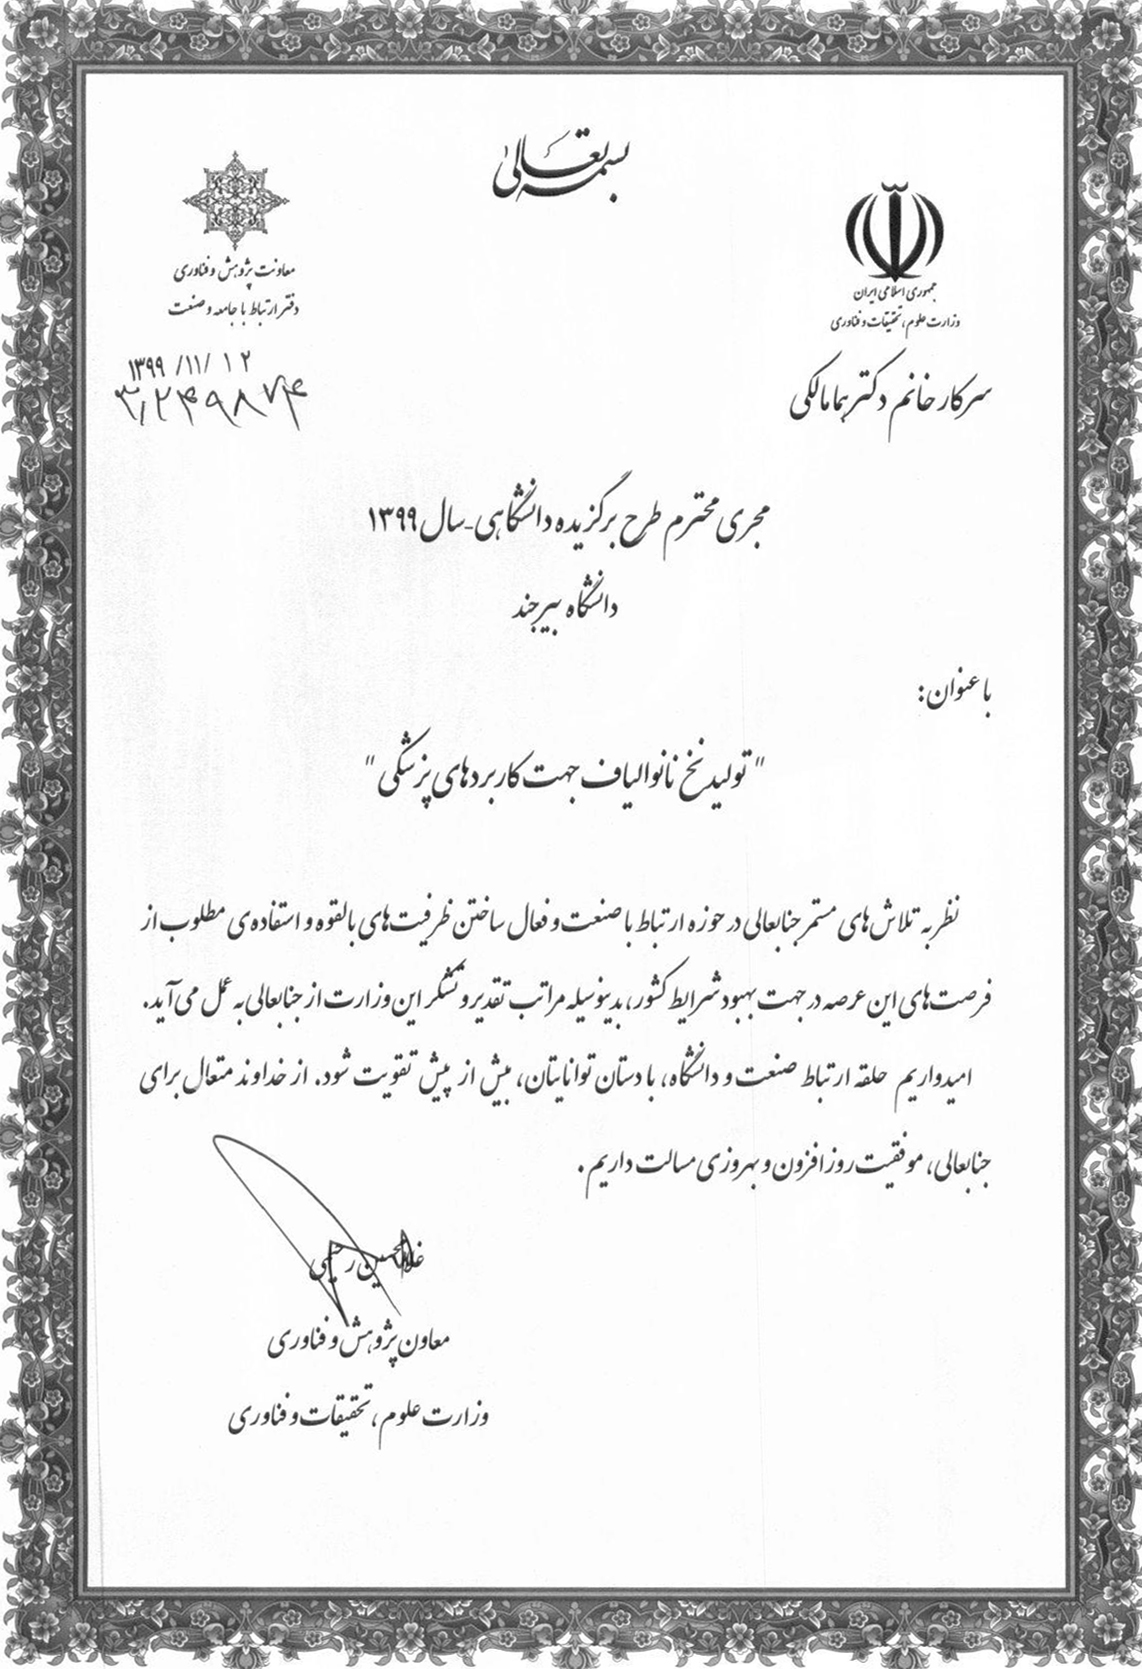 بسمه تعالی
جمهوری اسلامی ایران
وزارت علوم، تحقیقات و فناوری
معاونت پژوهش و فناوری
دفتر ارتباط با جامعه و صنعت
۱۳۹۹/۱۱/۱۲
۳/۲۴۹۸۷۴
سرکار خانم دکتر هما مالکی
مجری محترم طرح برگزیده دانشگاهی-سال ۱۳۹۹
دانشگاه بیرجند
با عنوان:
"تولید نخ نانوالیاف جهت کاربردهای پزشکی"
نظر به تلاش‌های مستمر جنابعالی در حوزه ارتباط با صنعت و فعال ساختن ظرفیت‌های بالقوه و استفاده‌ی مطلوب از
فرصت‌های این عرصه در جهت بهبود شرایط کشور، بدینوسیله مراتب تقدیر و تشکر این وزارت از جنابعالی به عمل می‌آید.
امیدواریم حلقه ارتباط صنعت و دانشگاه، با دستان توانایتان، بیش از پیش تقویت شود. از خداوند متعال برای
جنابعالی، موفقیت روزافزون و بهروزی مسالت داریم.
غلامحسین رحیمی
معاون پژوهش و فناوری
وزارت علوم، تحقیقات و فناوری